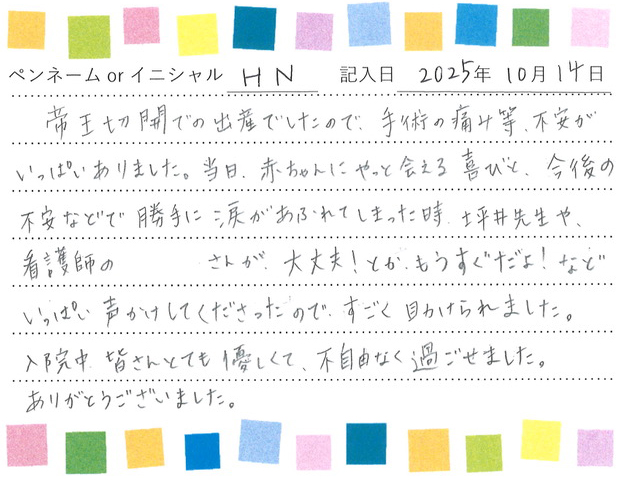 ペンネーム or イニシャル HN 記入日 2025年 10月 14日
帝王切開での出産でしたので、手術の痛み等、不安が
いっぱいありました。当日、赤ちゃんにやっと会える喜びと、今後の
不安などで勝手に涙があふれてしまった時、坪井先生や、
看護師の さんが、大丈夫！とか、もうすぐだよ！など
いっぱい声かけしてくださったので、すごく助けられました。
入院中、皆さんとても優しくて、不自由なく過ごせました。
ありがとうございました。